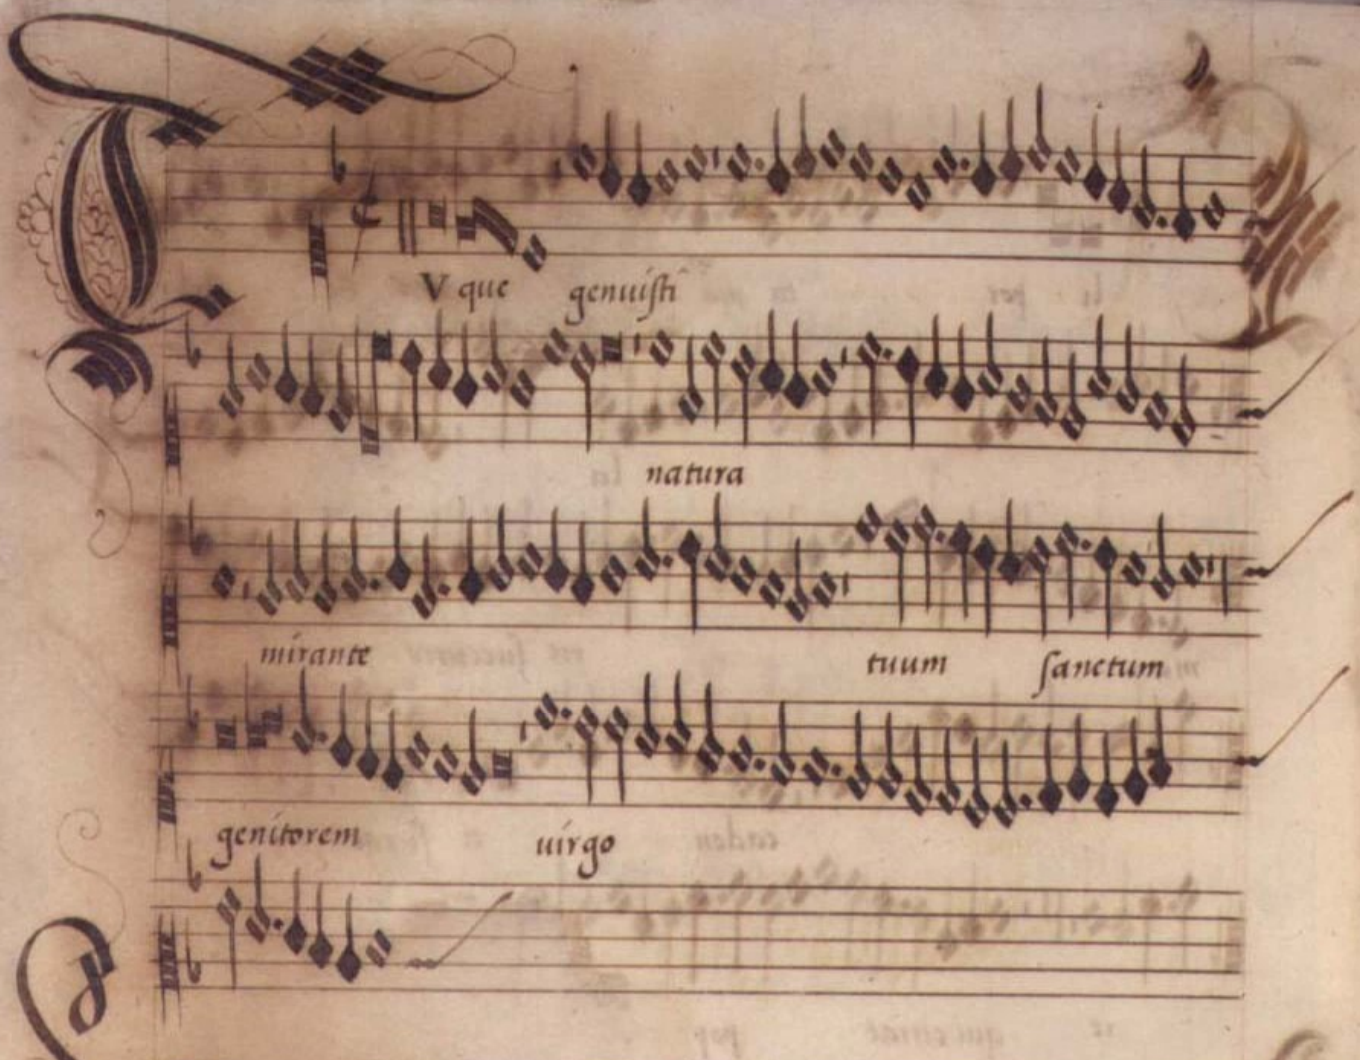 TV que genuisti
natura
mirante tuum sanctum
genitorem virgo